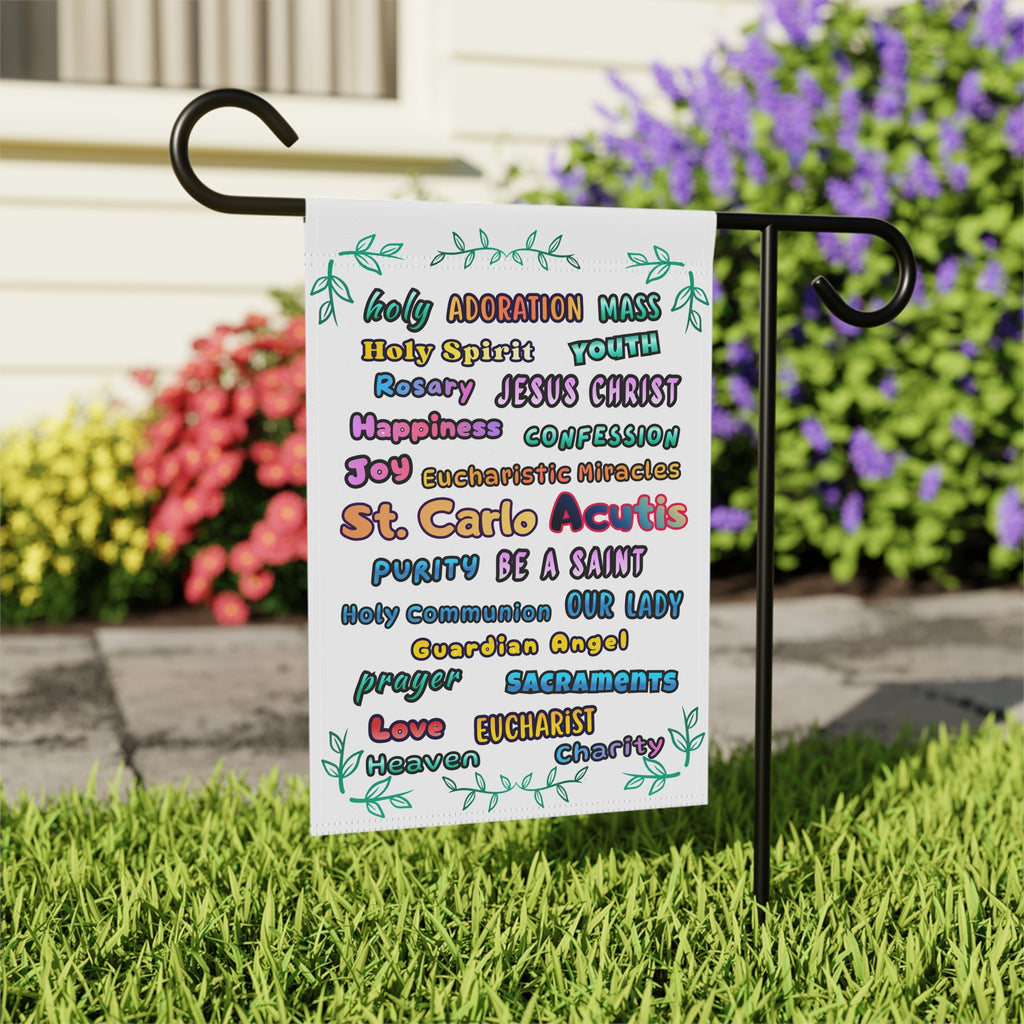 holy ADORATION MASS
Holy Spirit YOUTH
Rosary JESUS CHRIST
Happiness CONFESSION
Joy Eucharistic Miracles
St. Carlo Acutis
PURITY BE A SAINT
Holy Communion OUR LADY
Guardian Angel
prayer SACRAMENTS
Love EUCHARIST
Heaven Charity